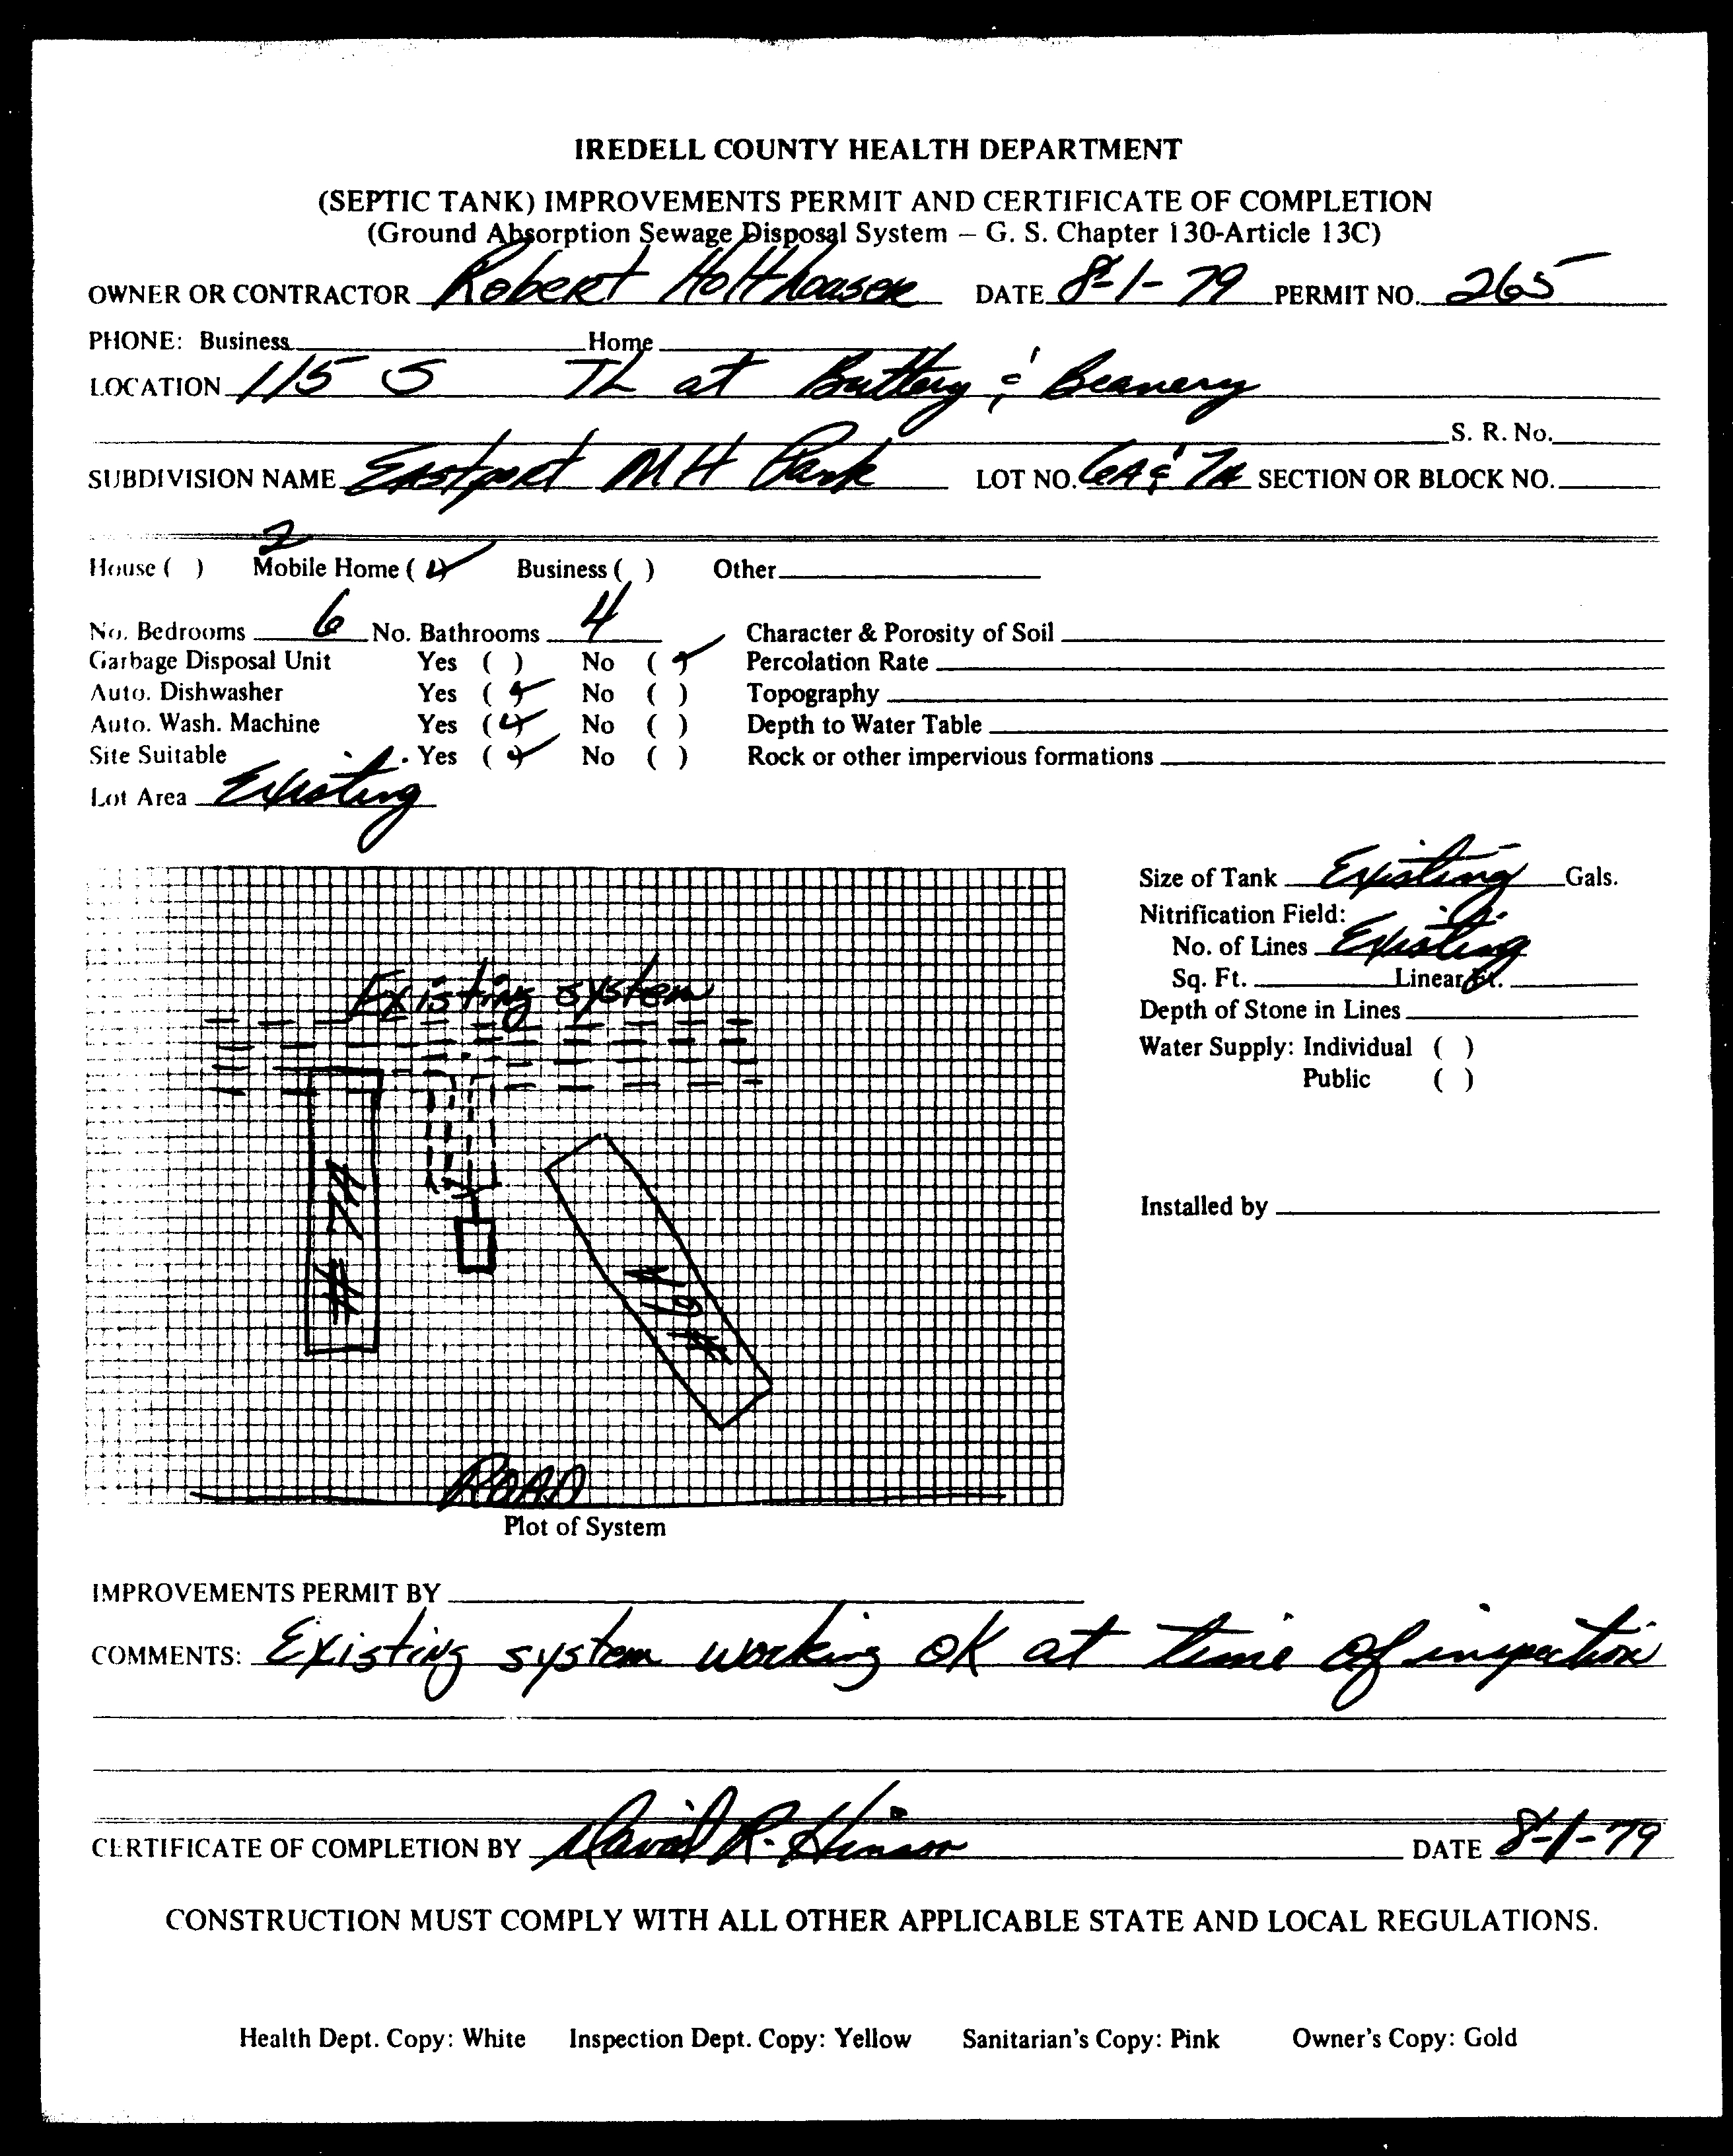 IREDELL COUNTY HEALTH DEPARTMENT
(SEPTIC TANK) IMPROVEMENTS PERMIT AND CERTIFICATE OF COMPLETION
(Ground Absorption Sewage Disposal System – G. S. Chapter 130-Article 13C)
OWNER OR CONTRACTOR Robert DATE 8-1-79 PERMIT NO. 265
PHONE: Business Home
LOCATION 115 S TL at Buttery & Beanery
S. R. No.
SUBDIVISION NAME Eastport MH Park LOT NO. 6A & 7A SECTION OR BLOCK NO.
2
House ( ) Mobile Home (✓) Business ( ) Other
No. Bedrooms 6 No. Bathrooms 4 Character & Porosity of Soil
Garbage Disposal Unit Yes ( ) No (✓) Percolation Rate
Auto. Dishwasher Yes (✓) No ( ) Topography
Auto. Wash. Machine Yes (✓) No ( ) Depth to Water Table
Site Suitable Yes (✓) No ( ) Rock or other impervious formations
Lot Area Existing
Size of Tank Existing Gals.
Nitrification Field:
No. of Lines Existing
Sq. Ft. Linear Ft.
Depth of Stone in Lines
Water Supply: Individual ( )
Public ( )
Installed by
Existing system
# 7A
# 6A
ROAD
Plot of System
IMPROVEMENTS PERMIT BY
COMMENTS: Existing system working OK at time of inspection
CERTIFICATE OF COMPLETION BY David R. Hinson DATE 8-1-79
CONSTRUCTION MUST COMPLY WITH ALL OTHER APPLICABLE STATE AND LOCAL REGULATIONS.
Health Dept. Copy: White Inspection Dept. Copy: Yellow Sanitarian's Copy: Pink Owner's Copy: Gold